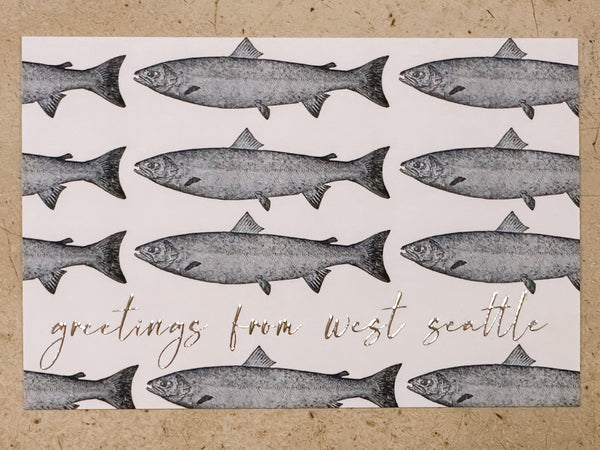 greetings from west seattle